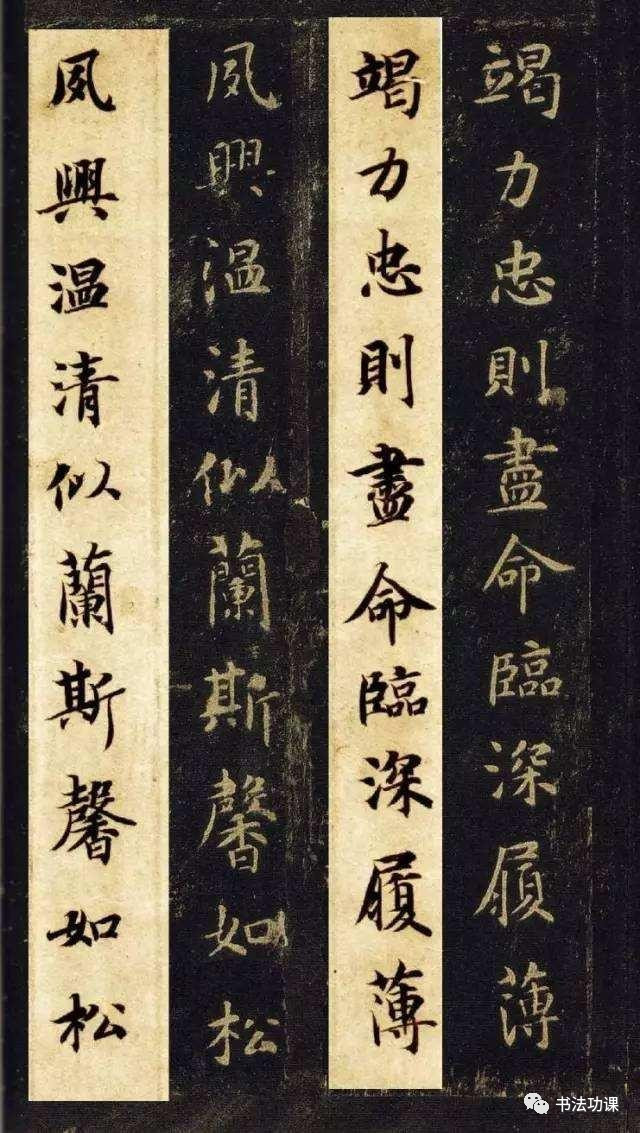 竭力忠則盡命臨深履薄
竭力忠則盡命臨深履薄
夙興温清似蘭斯馨如松
夙興温清似蘭斯馨如松
书法功课